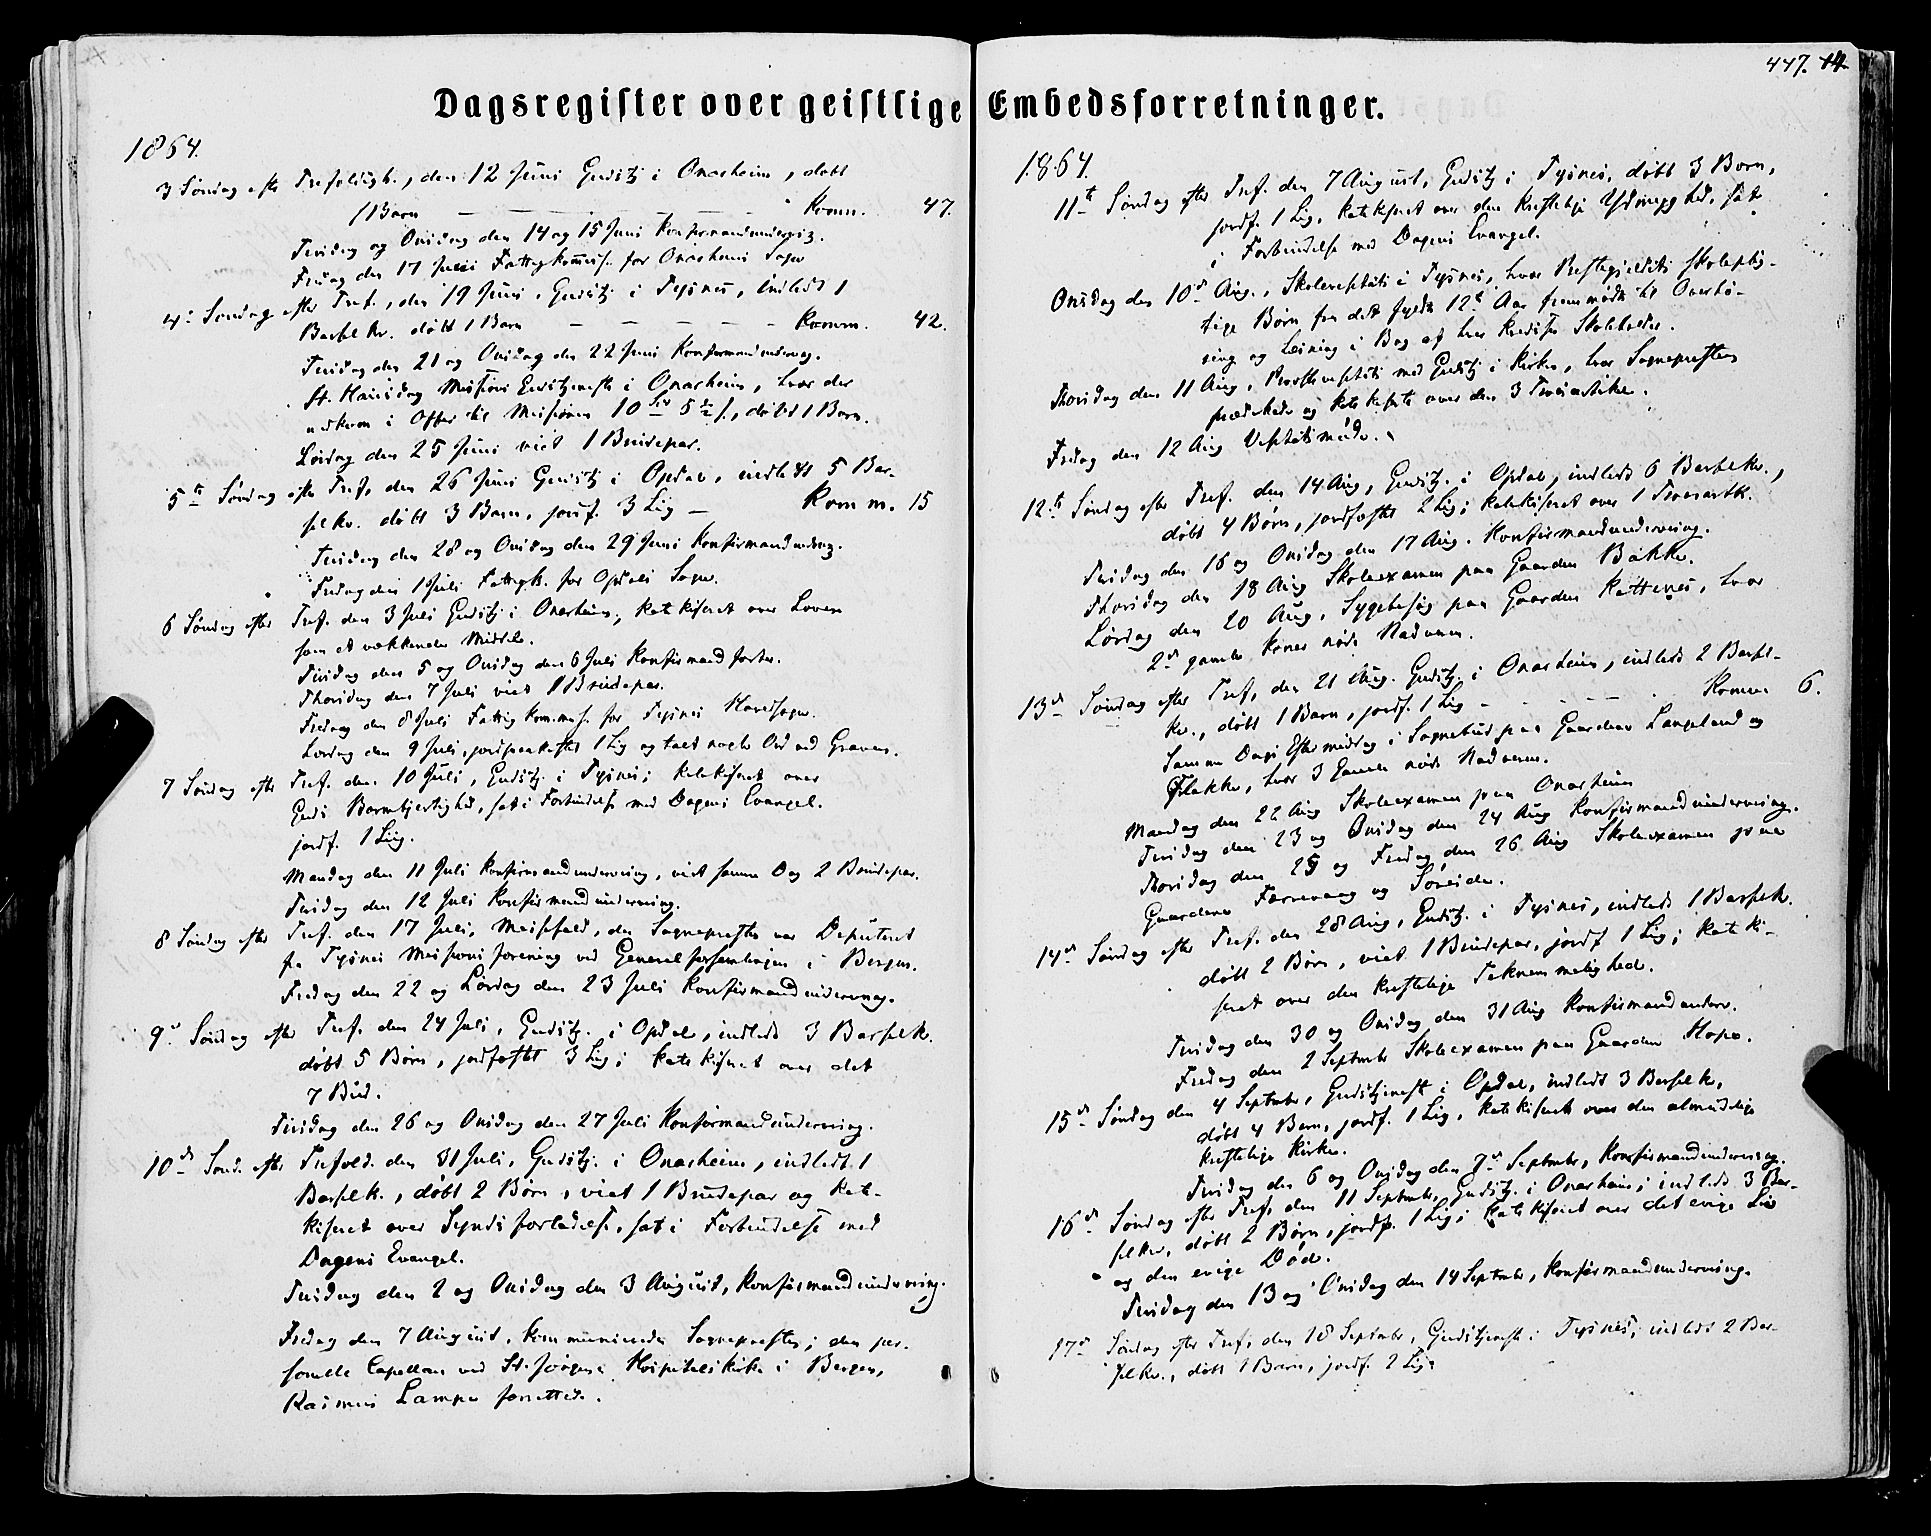 447. 14.
Dagsregister over geistlige Embedsforretninger.
1864.
3 Søndag efter Trefoldigh., den 12 Juni Gudstj. i Onarheim, døbt
1 Barn — — — — — — Komm. 47.
Tirsdag og Onsdag den 14 og 15 Juni Konfirmandundervisn.
Fredag den 17 Juni Fattigkommis. for Onarheims Sogn
4. Søndag efter Tref., den 19 Juni, Gudstj. i Tysnes, indledt 1
Barselkv. døbt 1 Barn — — — — — Komm. 42.
Tirsdag den 21 og Onsdag den 22 Juni Konfirmandunderv.
St. Hansdag Missions Gudstjeneste i Onarheim, hvor der
udkom i Offer til Missionen 10 5 ½ s., døbt 1 Barn.
Lørdag den 25 Juni viet 1 Brudepar.
5te Søndag efter Tref. den 26 Juni Gudstj. i Opdal, indledt 5 Bar-
selkv. døbt 3 Børn, jordf. 3 Lig — Komm. 15
Tirsdag den 28 og Onsdag den 29 Juni Konfirmandundervg.
Fredag den 1 Juli Fattigk. for Opdals Sogn.
6 Søndag efter Tref. den 3 Juli Gudstj. i Onarheim, katekiseret over Loven
som et vækkende Middel.
Tirsdag den 5 og Onsdag den 6 Juli Konfirmandforber.
Thorsdag den 7 Juli viet 1 Brudepar.
Fredag den 8 Juli Fattigkommis. for Tysnes Hovedsogn.
Lørdag den 9 Juli, jordpaakastet 1 Lig og talt nogle Ord ved Graven.
7 Søndag efter Tref. den 10 Juli, Gudstj. i Tysnes; katekiseret over
Guds Barmhjertighed, sat i Forbindelse med Dagens Evangel.
jordf. 1 Lig.
Mandag den 11 Juli Konfirmandundervisning, viet samme Dag 2 Brudepar.
Tirsdag den 12 Juli Konfirmandundervisning.
8 Søndag efter Tref. den 17 Juli, Messefald, da Sognepresten var Deputeret
fra Tysnes Missionsforening ved Generalforsamlingen i Bergen.
Fredag den 22 og Lørdag den 23 Juli Konfirmandundervisng.
9de Søndag efter Tref. den 24 Juli, Gudstj. i Opdal, indledt 3 Barselk.
døbt 5 Børn, jordfæstet 3 Lig; katekiseret over det
7 Bud.
Tirsdag den 26 og Onsdag den 27 Juli Konfirmandundervisning.
10de Sønd. efter Trefold. den 31 Juli, Gudstj. i Onarheim, indledt 1
Barselk., døbt 2 Børn, viet 1 Brudepar og kate-
kiseret over Syndsforladelse, sat i Forbindelse med
Dagens Evangel.
Tirsdag den 2 og Onsdag den 3 August, Konfirmandundervisning.
Fredag den 7 August, kommunicerede Sognepresten; den per-
sonelle Capellan ved St. Jørgens Hospitalskirke i Bergen,
Rasmus Lampe forrettede.
1864.
11te Søndag efter Tref. den 7 August, Gudstj. i Tysnes, døbt 3 Børn,
jordf. 1 Lig, katekiseret over den kristelige Ydmyghed, sat
i Forbindelse med Dagens Evangel.
Onsdag den 10de Aug., Skolevisitats i Tysnes, hvor Prestegjeldets skoleplig-
tige Børn fra det fyldte 12te Aar fremmødte til Overhø-
ring og Læsning i Bog af hver Kredses Skoleholder.
Thorsdag den 11 Aug, Provstevisitats med Gudstj. i Kirken, hvor Sognepresten
prædikede og katekiserte over den 3 Troesartikel.
Fredag den 12 Aug Visitatsmøde.
12te Søndag efter Tref. den 14 Aug, Gudstj. i Opdal, indledt 6 Barselkv.,
døbt 4 Børn, jordfæstet 2 Lig; katekiseret over 1 Troesartk.
Tirsdag den 16 og Onsdag den 17 Aug. Konfirmandundervisning.
Thorsdag den 18 Aug Skoleexamen paa Gaarden Bakke.
Lørdag den 20 Aug. Sygebesøg paa Gaarden Kattenes, hvor
2de gamle Koner nøde Nadveren.
13de Søndag efter Tref, den 21 Aug. Gudstj. i Onarheim, indledt 2 Barsel-
kv., døbt 1 Barn, jordf. 1 Lig - - - - Komm. 6.
Samme Dags Eftermiddag i Sognebud paa Gaardene Langeland og
Flakke, hvor 3 Gamle nøde Nadveren.
Mandag den 22 Aug Skoleexamen paa Onarheim
Tirsdag den 23 og Onsdag den 24 Aug Konfirmandundervisning.
Thorsdag den 25 og Fredag den 26 Aug Skoleexamen paa
Gaardene Færevaag og Søreide.
14de Søndag efter Tref. den 28 Aug, Gudstj. i Tysnes, indledt 1 Barselk.
døbt 2 Børn, viet 1 Brudepar, jordf 1 Lig; kateki-
seret over den kristelige Taknemmelighed.
Tirsdag den 30 og Onsdag den 31 Aug Konfirmandunderv.
Fredag den 2 September Skoleexamen paa Gaarden Hope.
15de Søndag den 4 September, Gudstjeneste i Opdal, indledt 3 Barselk,
døbt 4 Børn, jordf. 1 Lig, katekiseret over den almindelige
kristelige Kirke.
Tirsdag den 6 og Onsdag den 7de September, Konfirmandundervisning.
16de Søndag efter Tref. den 11 September, Gudstj. i Onarheim; indledt 3 Bar-
selkv, døbt 2 Børn, jordf. 1 Lig; katekiseret over det evige Liv
og den evige Død.
Tirsdag den 13 og Onsdag den 14 September, Konfirmandundervisning.
17de Søndag efter Tref, den 18 September, Gudstjeneste i Tysnes; indledt 2 Bar-
selkv., døbt 1 Barn, jordf. 2 Lig